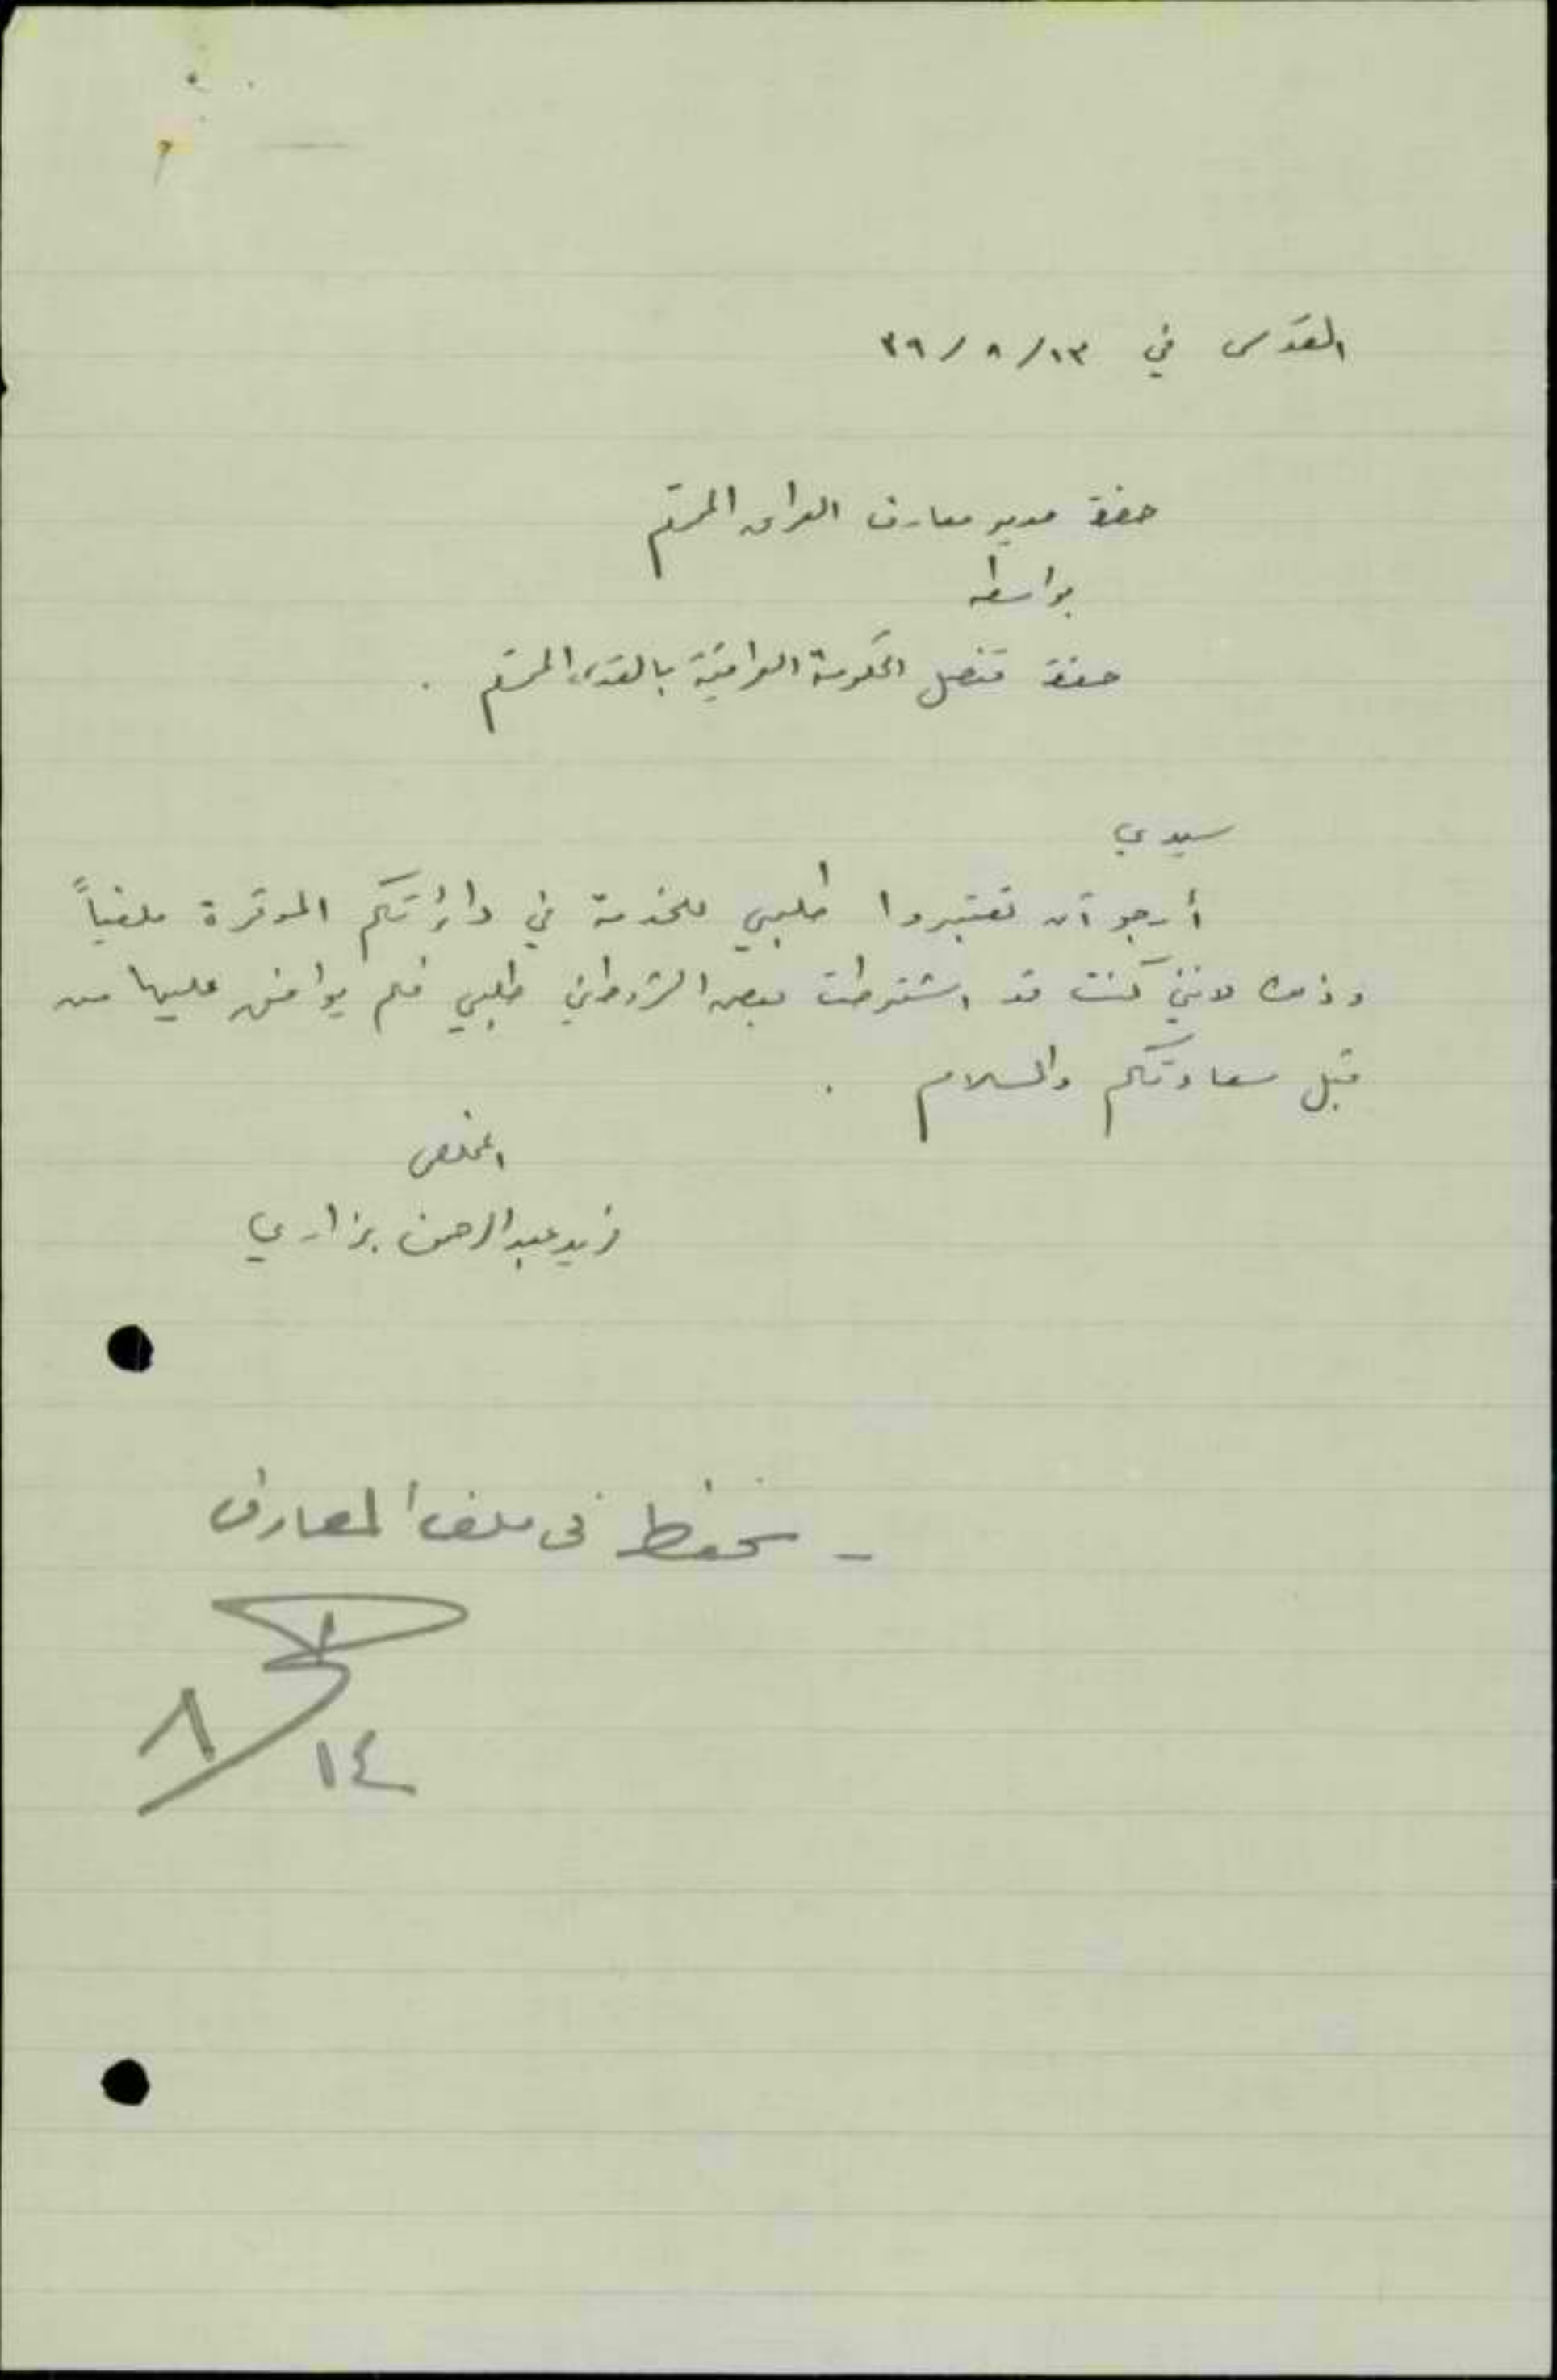 القدس في ١٣/ ٨ / ٣٩
حضرة مدير معارف العراق المحترم
بواسطة
حضرة قنصل الحكومة العراقية بالقدس المحترم .
سيدي
أرجو أن تعتبروا طلبي للخدمة في دائرتكم الموقرة ملغياً
وذلك لانني كنت قد اشترطت بعض الشروط في طلبي فلم يوافق عليها من
قبل سعادتكم والسلام .
المخلص
فريد عبد الرحمن
- تحفظ في ملف المعارف
١٤ / ٨